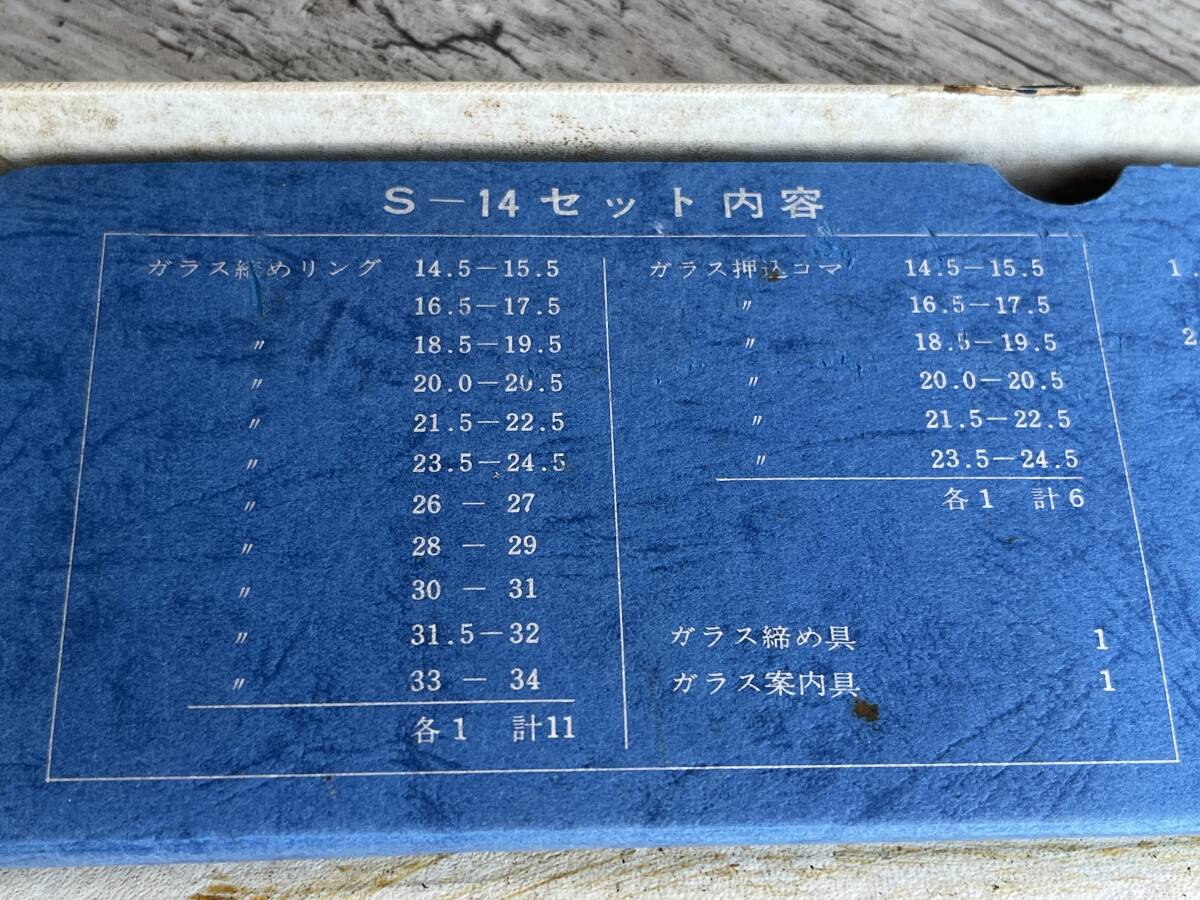 S－14セット内容
ガラス締めリング 14.5－15.5
16.5－17.5
〃 18.5－19.5
〃 20.0－20.5
〃 21.5－22.5
〃 23.5－24.5
〃 26 － 27
〃 28 － 29
〃 30 － 31
〃 31.5－32
〃 33 － 34
各1 計11
ガラス押込コマ 14.5－15.5
〃 16.5－17.5
〃 18.5－19.5
〃 20.0－20.5
〃 21.5－22.5
〃 23.5－24.5
各1 計6
ガラス締め具 1
ガラス案内具 1
1.
2